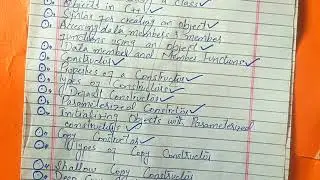 a class
Objects in C++
Syntax for creating an object
Accessing data members & member
functions using an object
Data member and Member Functions
Constructor
Properties of a Constructor
Types of Constructors
Default Constructor
Parameterized Constructor
Initializing Objects with Parameterized
constructors
Copy Constructor
Types of Copy Constructor
Shallow Copy Constructor
Copy Constructor